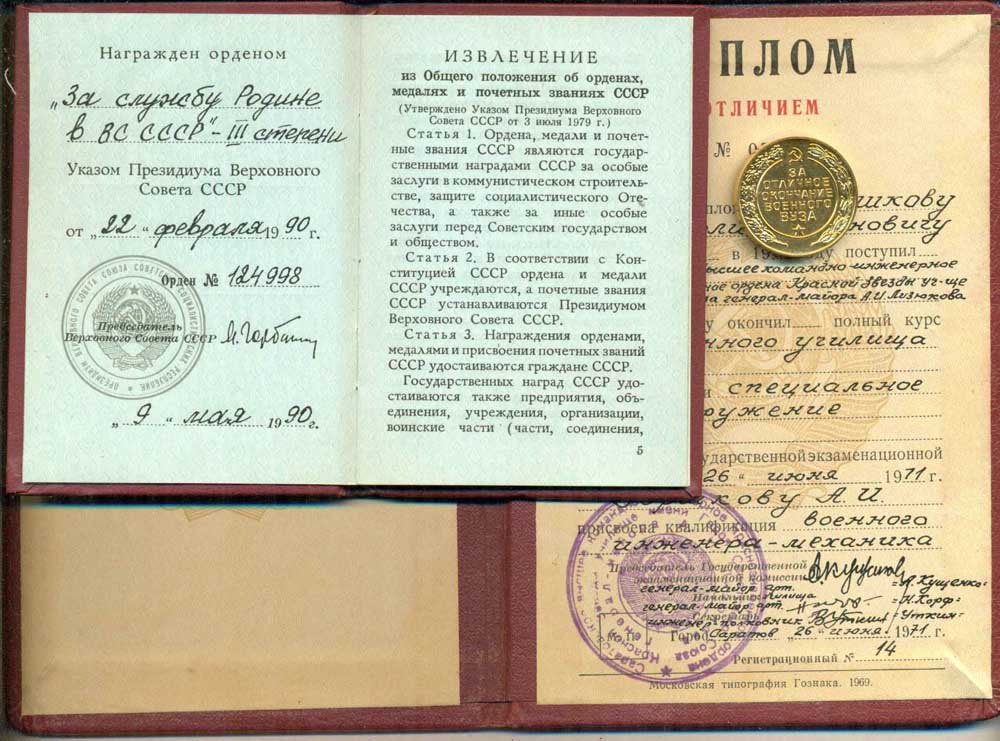 Награжден орденом
„За службу Родине
в ВС СССР" - III степени
Указом Президиума Верховного
Совета СССР
от „22" февраля 1990 г.
Орден № 124998
Председатель
Верховного Совета СССР
„9" мая 1990 г.
ИЗВЛЕЧЕНИЕ
из Общего положения об орденах,
медалях и почетных званиях СССР
(Утверждено Указом Президиума Верховного
Совета СССР от 3 июля 1979 г.)
Статья 1. Ордена, медали и почет-
ные звания СССР являются государ-
ственными наградами СССР за особые
заслуги в коммунистическом строитель-
стве, защите социалистического Оте-
чества, а также за иные особые
заслуги перед Советским государством
и обществом.
Статья 2. В соответствии с Кон-
ституцией СССР ордена и медали
СССР учреждаются, а почетные звания
СССР устанавливаются Президиумом
Верховного Совета СССР.
Статья 3. Награждения орденами,
медалями и присвоения почетных званий
СССР удостаиваются граждане СССР.
Государственных наград СССР удо-
стаиваются также предприятия, объ-
единения, учреждения, организации,
воинские части (части, соединения,
5
ПЛОМ
ОТЛИЧИЕМ
№
ЗА
ОТЛИЧНОЕ
ОКОНЧАНИЕ
ВОЕННОГО
ВУЗА
шкову
новичу
в 19 поступил
высшее командно-инженерное
ордена Красной Звезды уч-ще
генерал-майора А.И. Лизюкова
у окончил полный курс
енного училища
и специальное
ружение
ударственной экзаменационной
26 " июня 1971 г.
кову А.И.
присвоена квалификация военного
инженера-механика
Председатель Государственной
экзаменационной комиссии
генерал-майор арт. =А. Кущенко=
Начальник училища
генерал-майор арт. =Н. Корф=
Секретарь
инженер полковник =Уткин=
М. П. Город Саратов „26" июня 1971 г.
Регистрационный № 14
Московская типография Гознака. 1969.